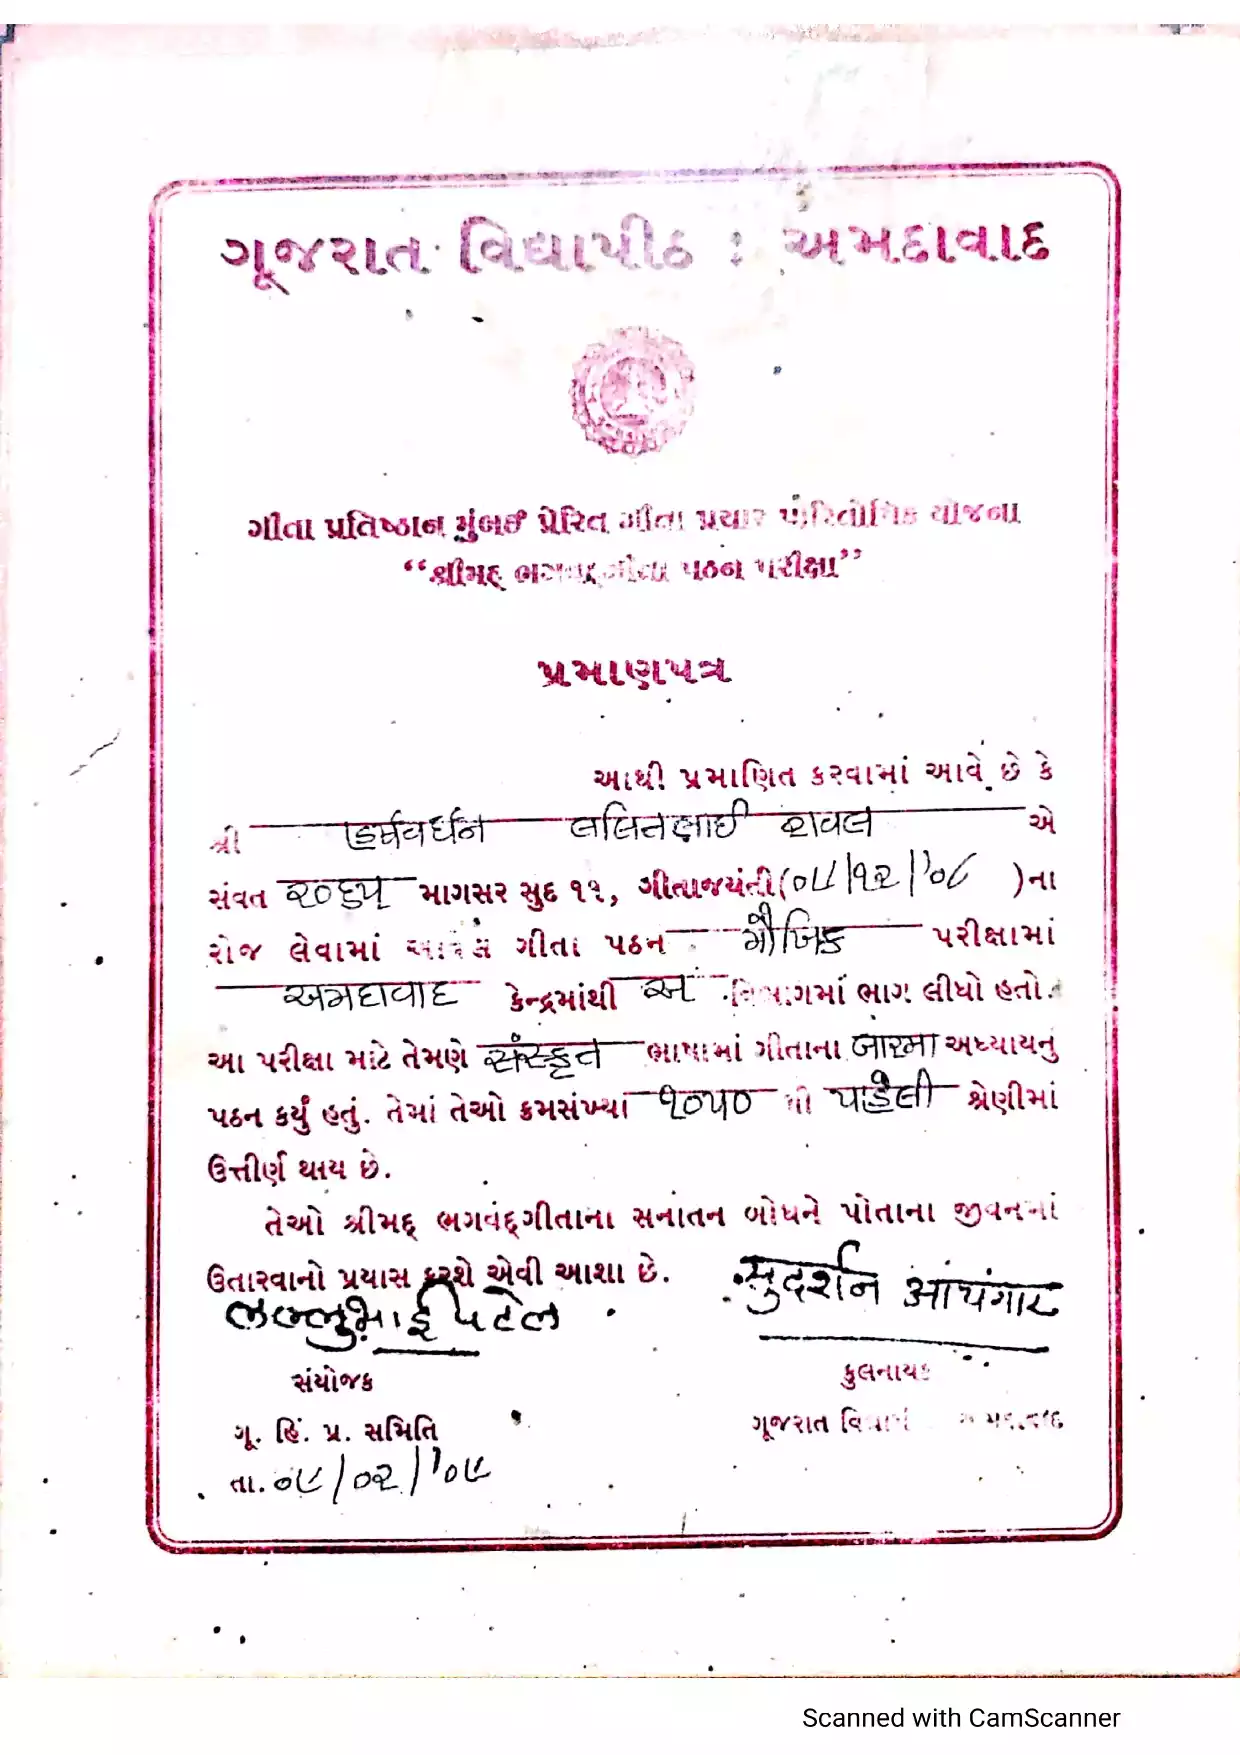 ગૂજરાત વિદ્યાપીઠ : અમદાવાદ
ગીતા પ્રતિષ્ઠાન મુંબઈ પ્રેરિત ગીતા પ્રચાર પારિતોષિક યોજના
“શ્રીમદ્ ભગવદ્ગીતા પઠન પરીક્ષા”
પ્રમાણપત્ર
આથી પ્રમાણિત કરવામાં આવે છે કે
શ્રી હર્ષવર્ધન લલિતભાઈ રાવલ એ
સંવત ૨૦૬૫ માગસર સુદ ૧૧, ગીતાજયંતી (૦૯/૧૨/'૦૮ )ના
રોજ લેવામાં આવેલ ગીતા પઠન મૌખિક પરીક્ષામાં
અમદાવાદ કેન્દ્રમાંથી અ વિભાગમાં ભાગ લીધો હતો.
આ પરીક્ષા માટે તેમણે સંસ્કૃત ભાષામાં ગીતાના બારમા અધ્યાયનું
પઠન કર્યું હતું. તેમાં તેઓ ક્રમસંખ્યા ૧૦૫૦ થી પહેલી શ્રેણીમાં
ઉત્તીર્ણ થાય છે.
તેઓ શ્રીમદ્ ભગવદ્ગીતાના સનાતન બોધને પોતાના જીવનમાં
ઉતારવાનો પ્રયાસ કરશે એવી આશા છે.
લલ્લુભાઈ પટેલ सुदर्शन आयंगार
સંયોજક કુલનાયક
ગૂ. હિં. પ્ર. સમિતિ ગૂજરાત વિદ્યાપીઠ અમદાવાદ
તા. ૦૯/૦૨/'૦૯
Scanned with CamScanner